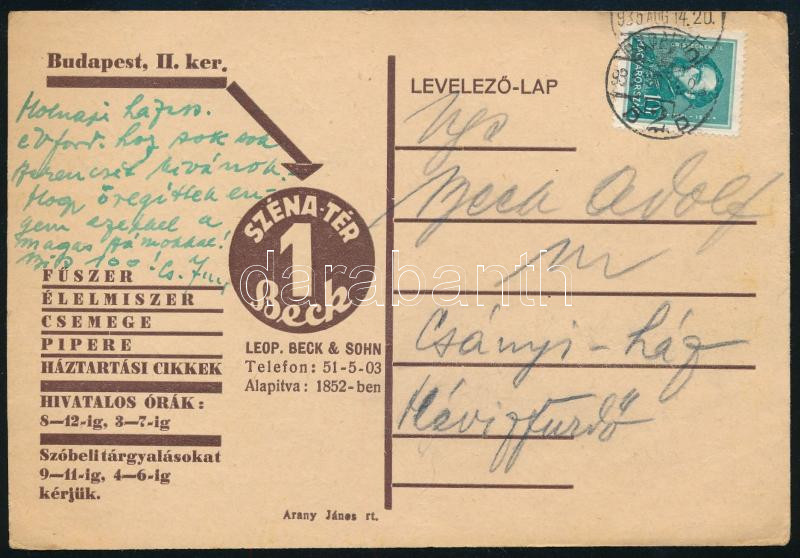 Budapest, II. ker.
Holnapi házas.
évford. hoz sok sok
szerencsét kívánok.
Hogy öregíttek en-
gem ezekkel a
magas számokkal!
Bis 100!
SZÉNA-TÉR
1
Beck
LEOP. BECK & SOHN
Telefon: 51-5-03
Alapitva: 1852-ben
FŰSZER
ÉLELMISZER
CSEMEGE
PIPERE
HÁZTARTÁSI CIKKEK
HIVATALOS ÓRÁK:
8—12-ig, 3—7-ig
Szóbeli tárgyalásokat
9—11-ig, 4—6-ig
kérjük.
Arany János rt.
LEVELEZŐ-LAP
Ngs
Beck Adolf
Csányi-ház
Hévizfürdő
936 AUG 14. 20.
MAGYARORSZÁG
10
darabanth